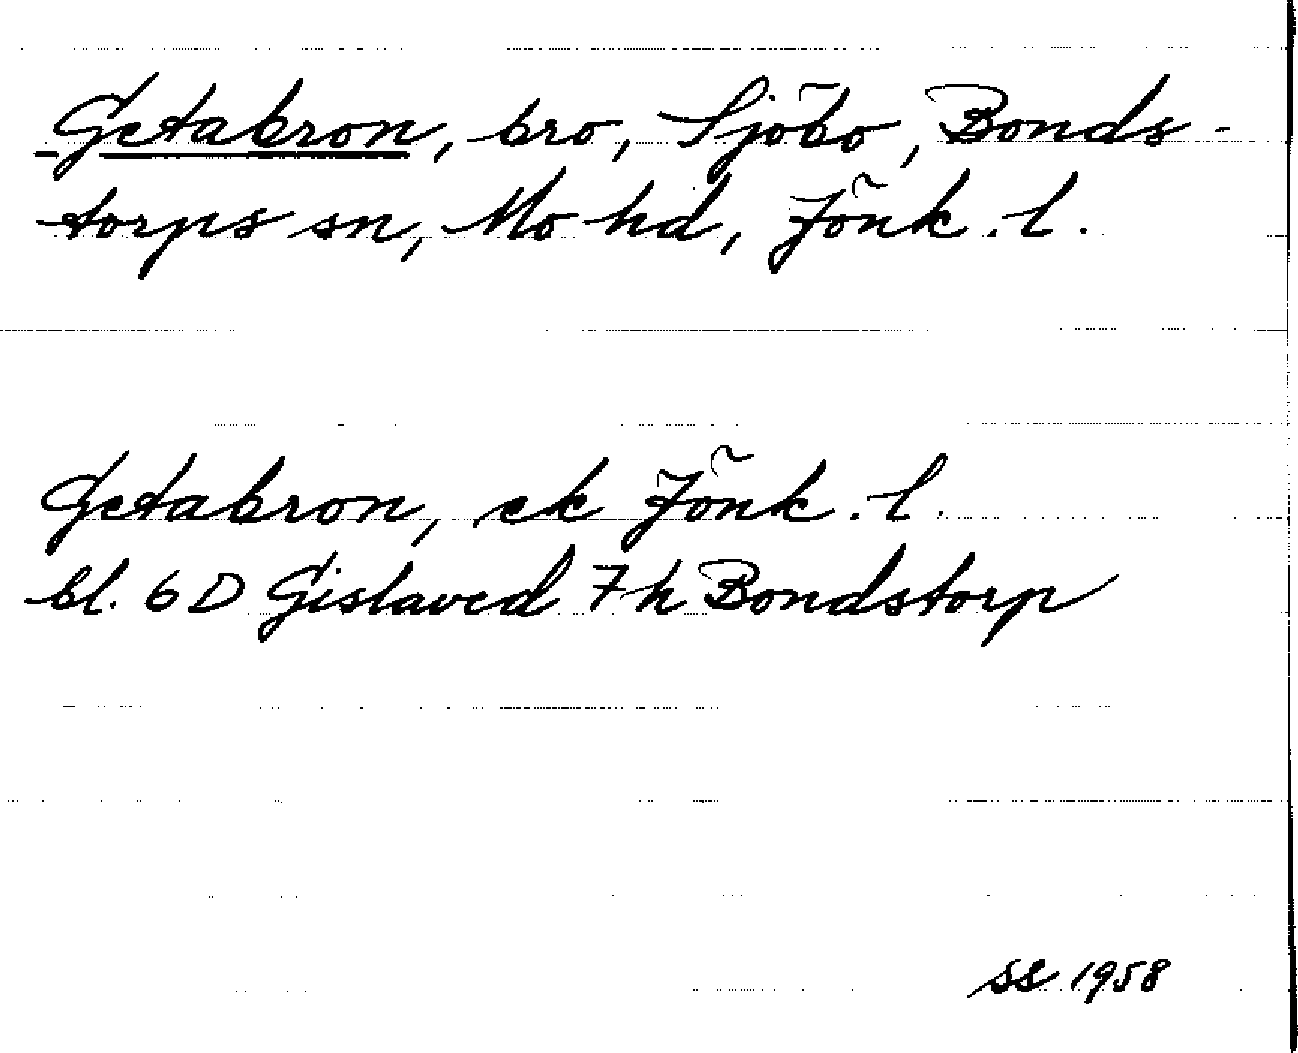 Getabron, bro, Sjöbo, Bonds-
torps sn, Mo hd, Jönk. l.
Getabron, ek Jönk. l.
bl. 6D Gislaved 7h Bondstorp
SE 1958